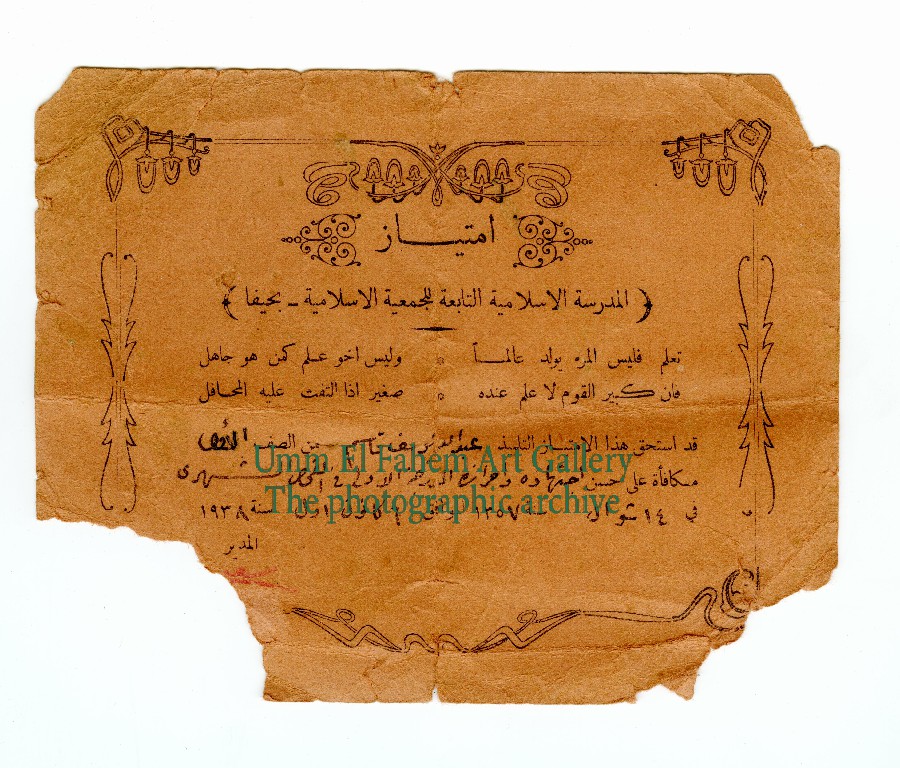 امتيــاز
﴿ المدرسة الاسلامية التابعة للجمعية الاسلامية ــ بحيفا ﴾
تعلم فليس المرء يولد عالمــاً * وليس اخو عـلم كمن هو جاهل
فان كبير القوم لا علم عنده * صغير اذا التفت عليه المحـافل
قد استحق هذا الامتياز التلميذ من الصف
مكافأة على حسن اجتهاده الاولى في شهرى
في ١٤ شوال سنة ١٣٥٧ الاول سنة ١٩٣٨
المدير
Umm El Fahem Art Gallery
The photographic archive